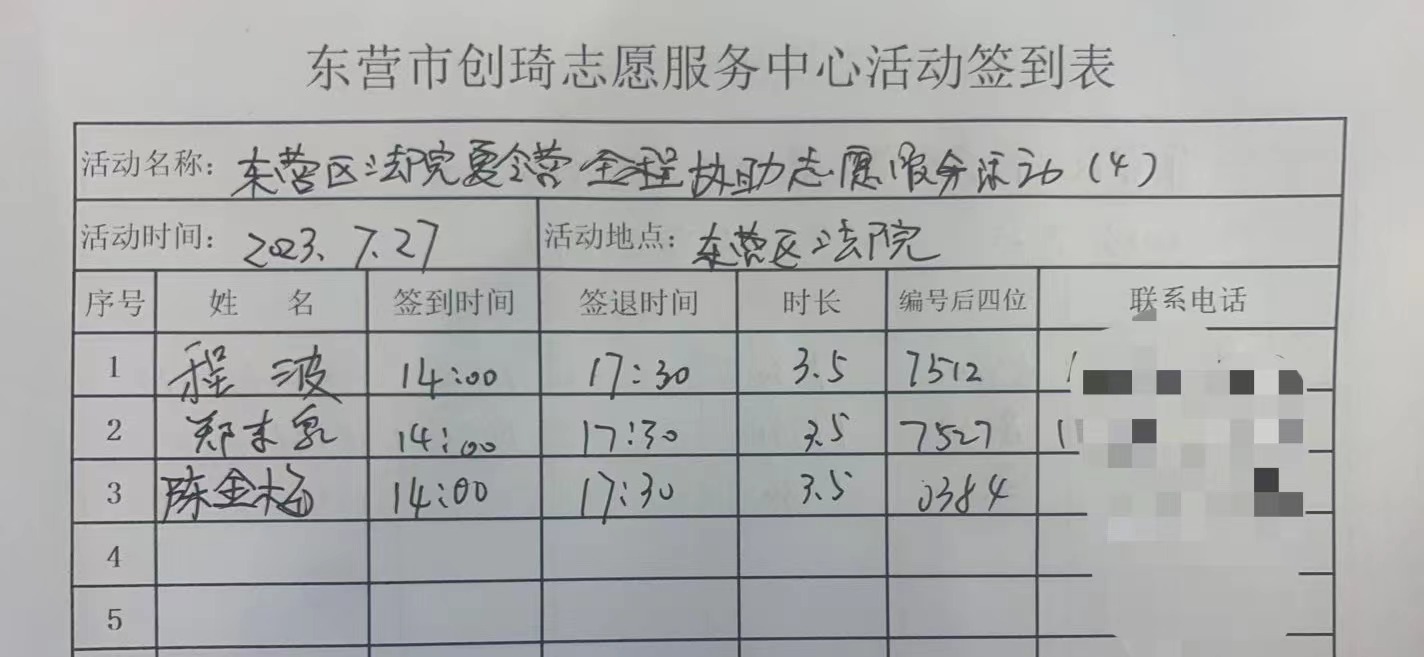 东营市创琦志愿服务中心活动签到表
活动名称: 东营区法院夏令营全程协助志愿服务活动(4)
活动时间: 2023.7.27 活动地点: 东营区法院
序号 姓 名 签到时间 签退时间 时长 编号后四位 联系电话
1 程波 14:00 17:30 3.5 7512
2 郑 14:00 17:30 3.5 7527
3 陈金梅 14:00 17:30 3.5 0384
4
5